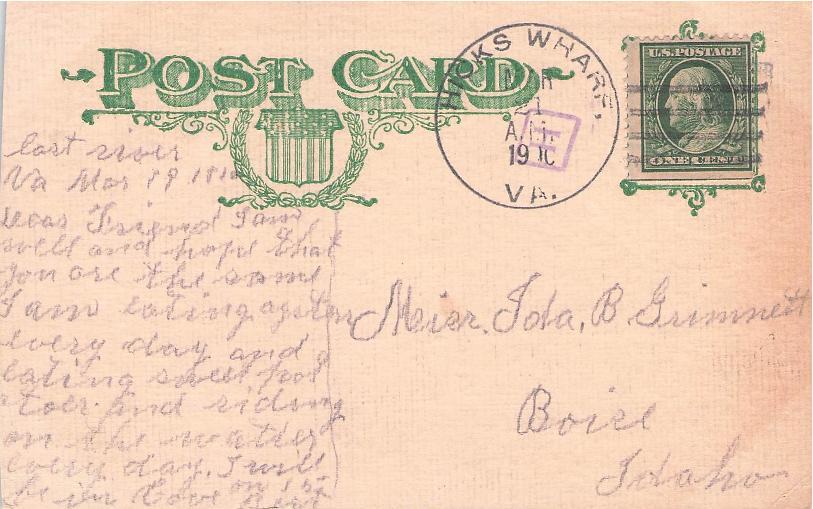 POST CARD
HICKS WHARF,
MAR
21
A.M.
VA.
U.S. POSTAGE
ONE CENT
East river
Va Mar 19
Dear Friend I am
well and hope that
you are the same
I am eating oysters
every day and
eating sweet pot
toes and riding
on the watter
every day. I will
be in on 1st
Ida, B Grimnett
Boise
Idaho